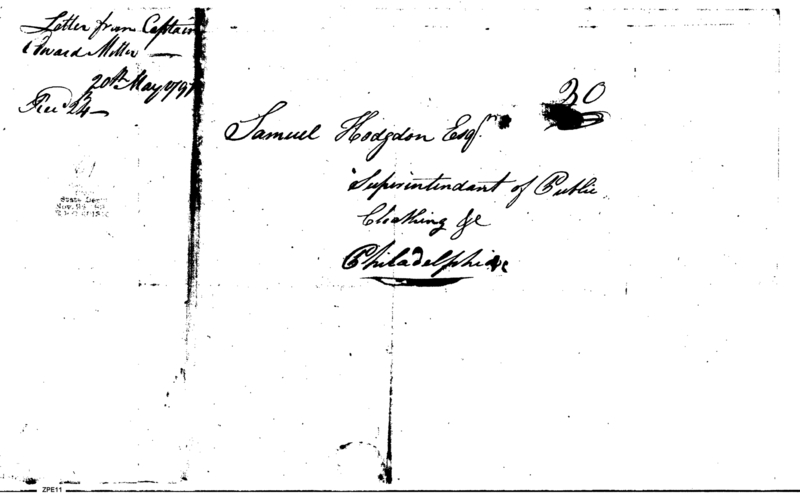 Letter from Captain
Edward Miller
20th May 1797
Rec'd 24
20
Samuel Hodgdon Esqr
Superintendant of Public
Cloathing &c
Philadelphia
State Dept
ZPE11